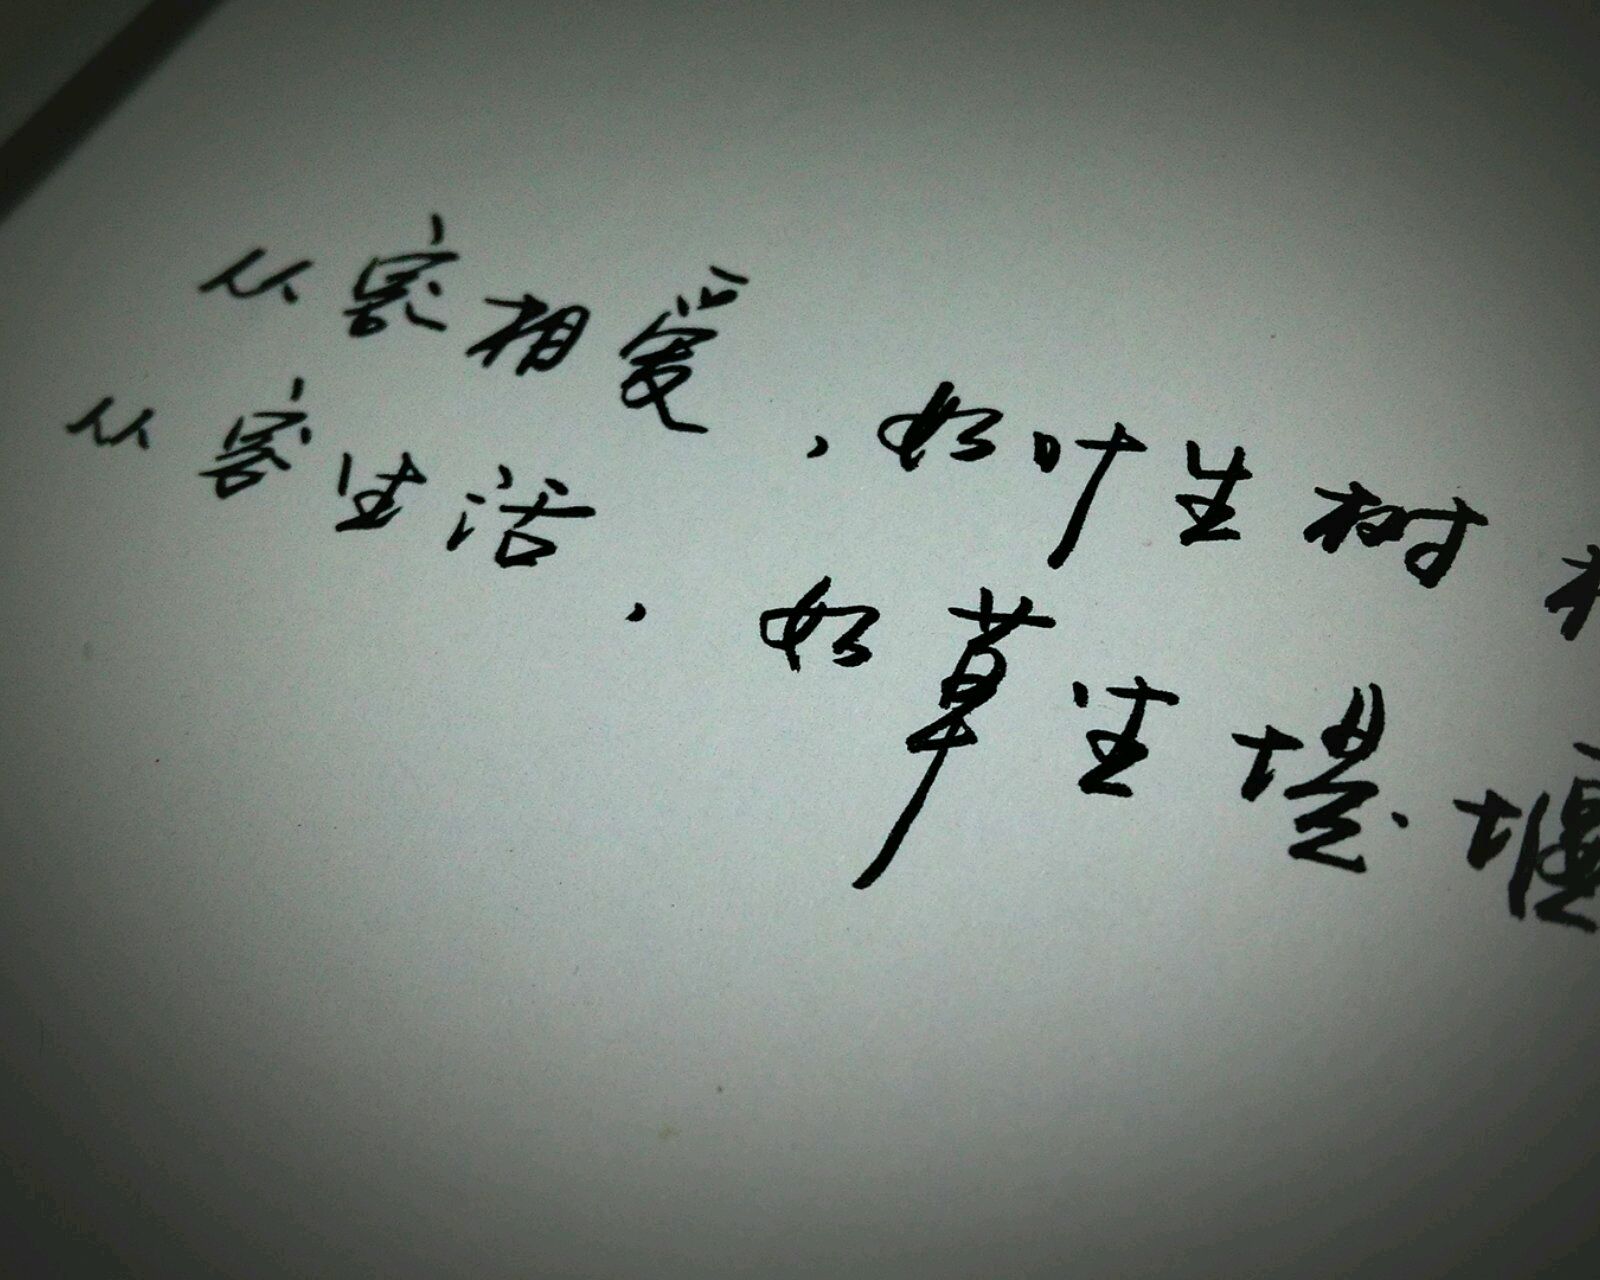 从容相爱，如叶生树
从容生活，如草生堤堰